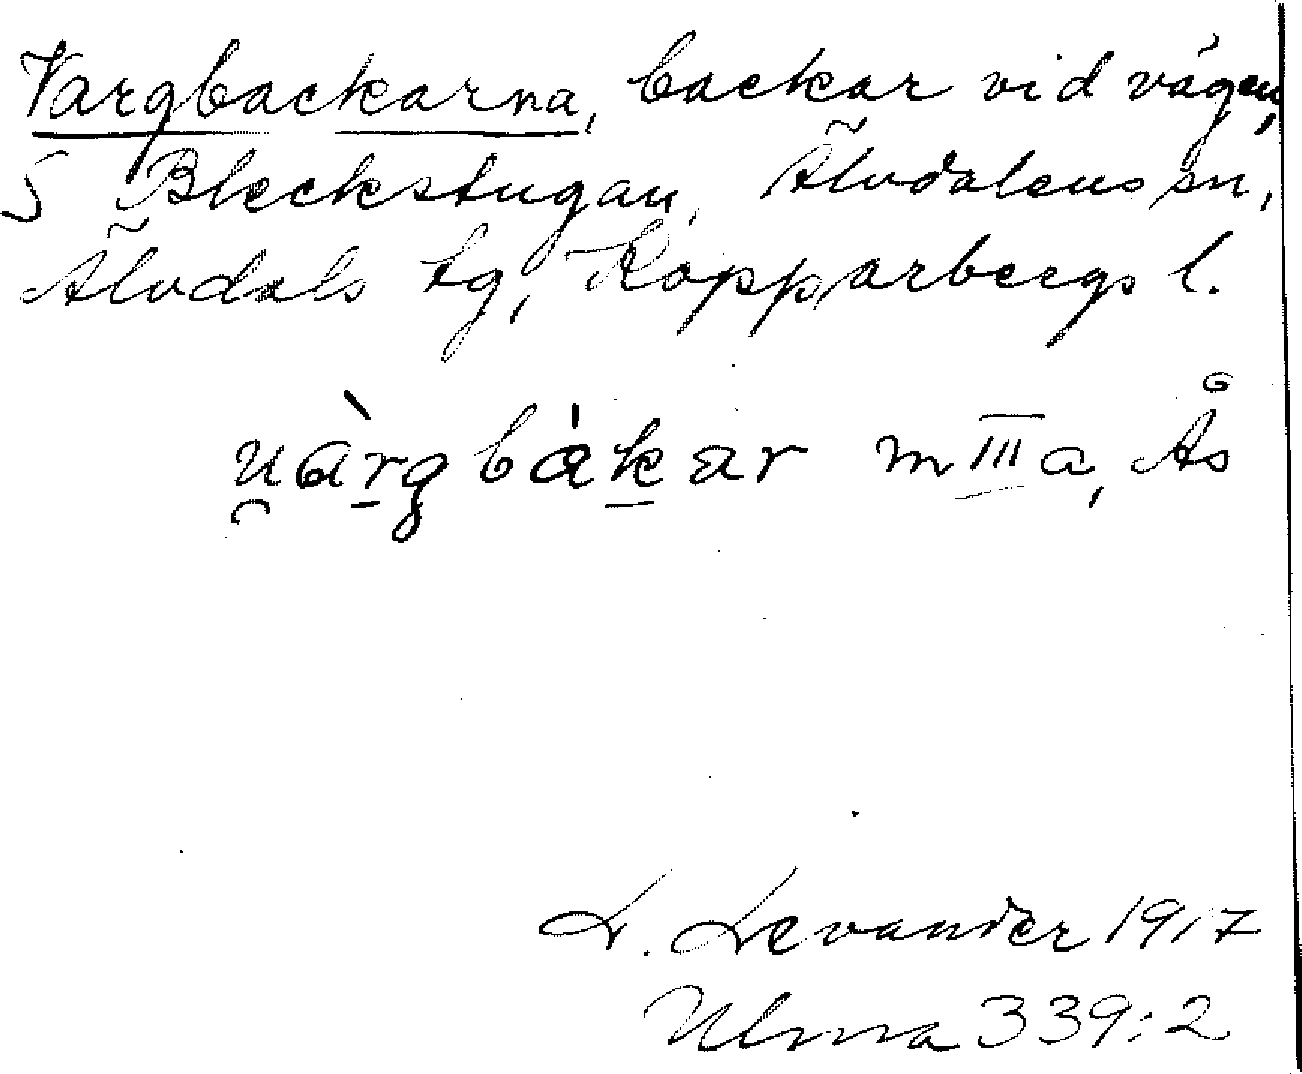 Vargbackarna, backar vid vägen,
S Bleckstugan, Älvdalens sn,
Älvdals tg, Kopparbergs l.
u̯àrg bàk̠ar m III a, Ås
L. Levander 1917
Ulma 339:2